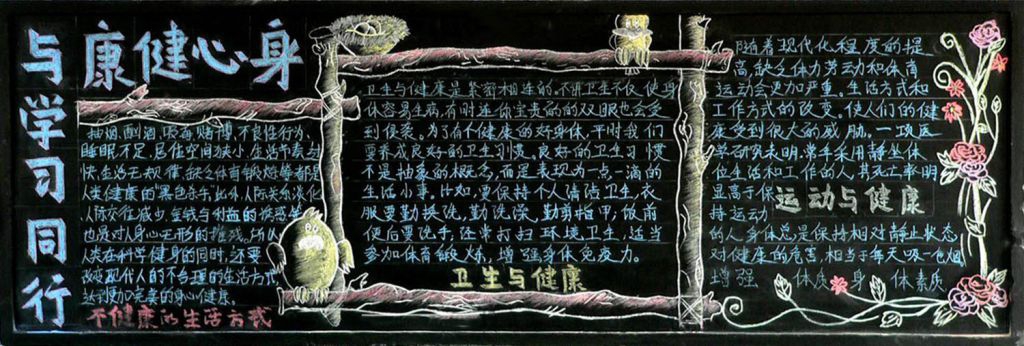 身心健康
与学习同行
抽烟、酗酒、吸毒、赌博、不良性行为、
睡眠不足、居住空间狭小、生活节奏过
快、生活无规律、缺乏体育锻炼等都是
人类健康的黑色杀手;此外,人际关系淡化
人际交往减少,金钱与利益的诱惑等
也是对人身心无形的摧残。所以
人类在科学健身的同时,还要
现代人的不合理的生活方式
达到更加完美的身心健康。
不健康的生活方式
卫生与健康是紧密相连的。不讲卫生不仅使身
体容易生病,有时连你宝贵的的双眼也会受
到侵袭。为了有个健康的好身体,平时我们
要养成良好的卫生习惯。良好的卫生习惯
不是抽象的概念,而是表现为一点一滴的
生活小事。比如,要保持个人清洁卫生,衣
服要勤换洗,勤洗澡,勤剪指甲,饭前
便后要洗手,还常打扫环境卫生,适当
参加体育锻炼,增强身体免疫力。
卫生与健康
随着现代化程度的提
高,缺乏体力劳动和体育
运动会更加严重。生活方式和
工作方式的改变。使人们的健
康受到很大的威胁。一项医
学研究表明,常年采用静坐体
位生活和工作的人,其死亡率明
显高于保
持运动
运动与健康
的人,身体总是保持相对静止状态
对健康的危害,相当于每天吸一包烟
增强 体质 身 体素质